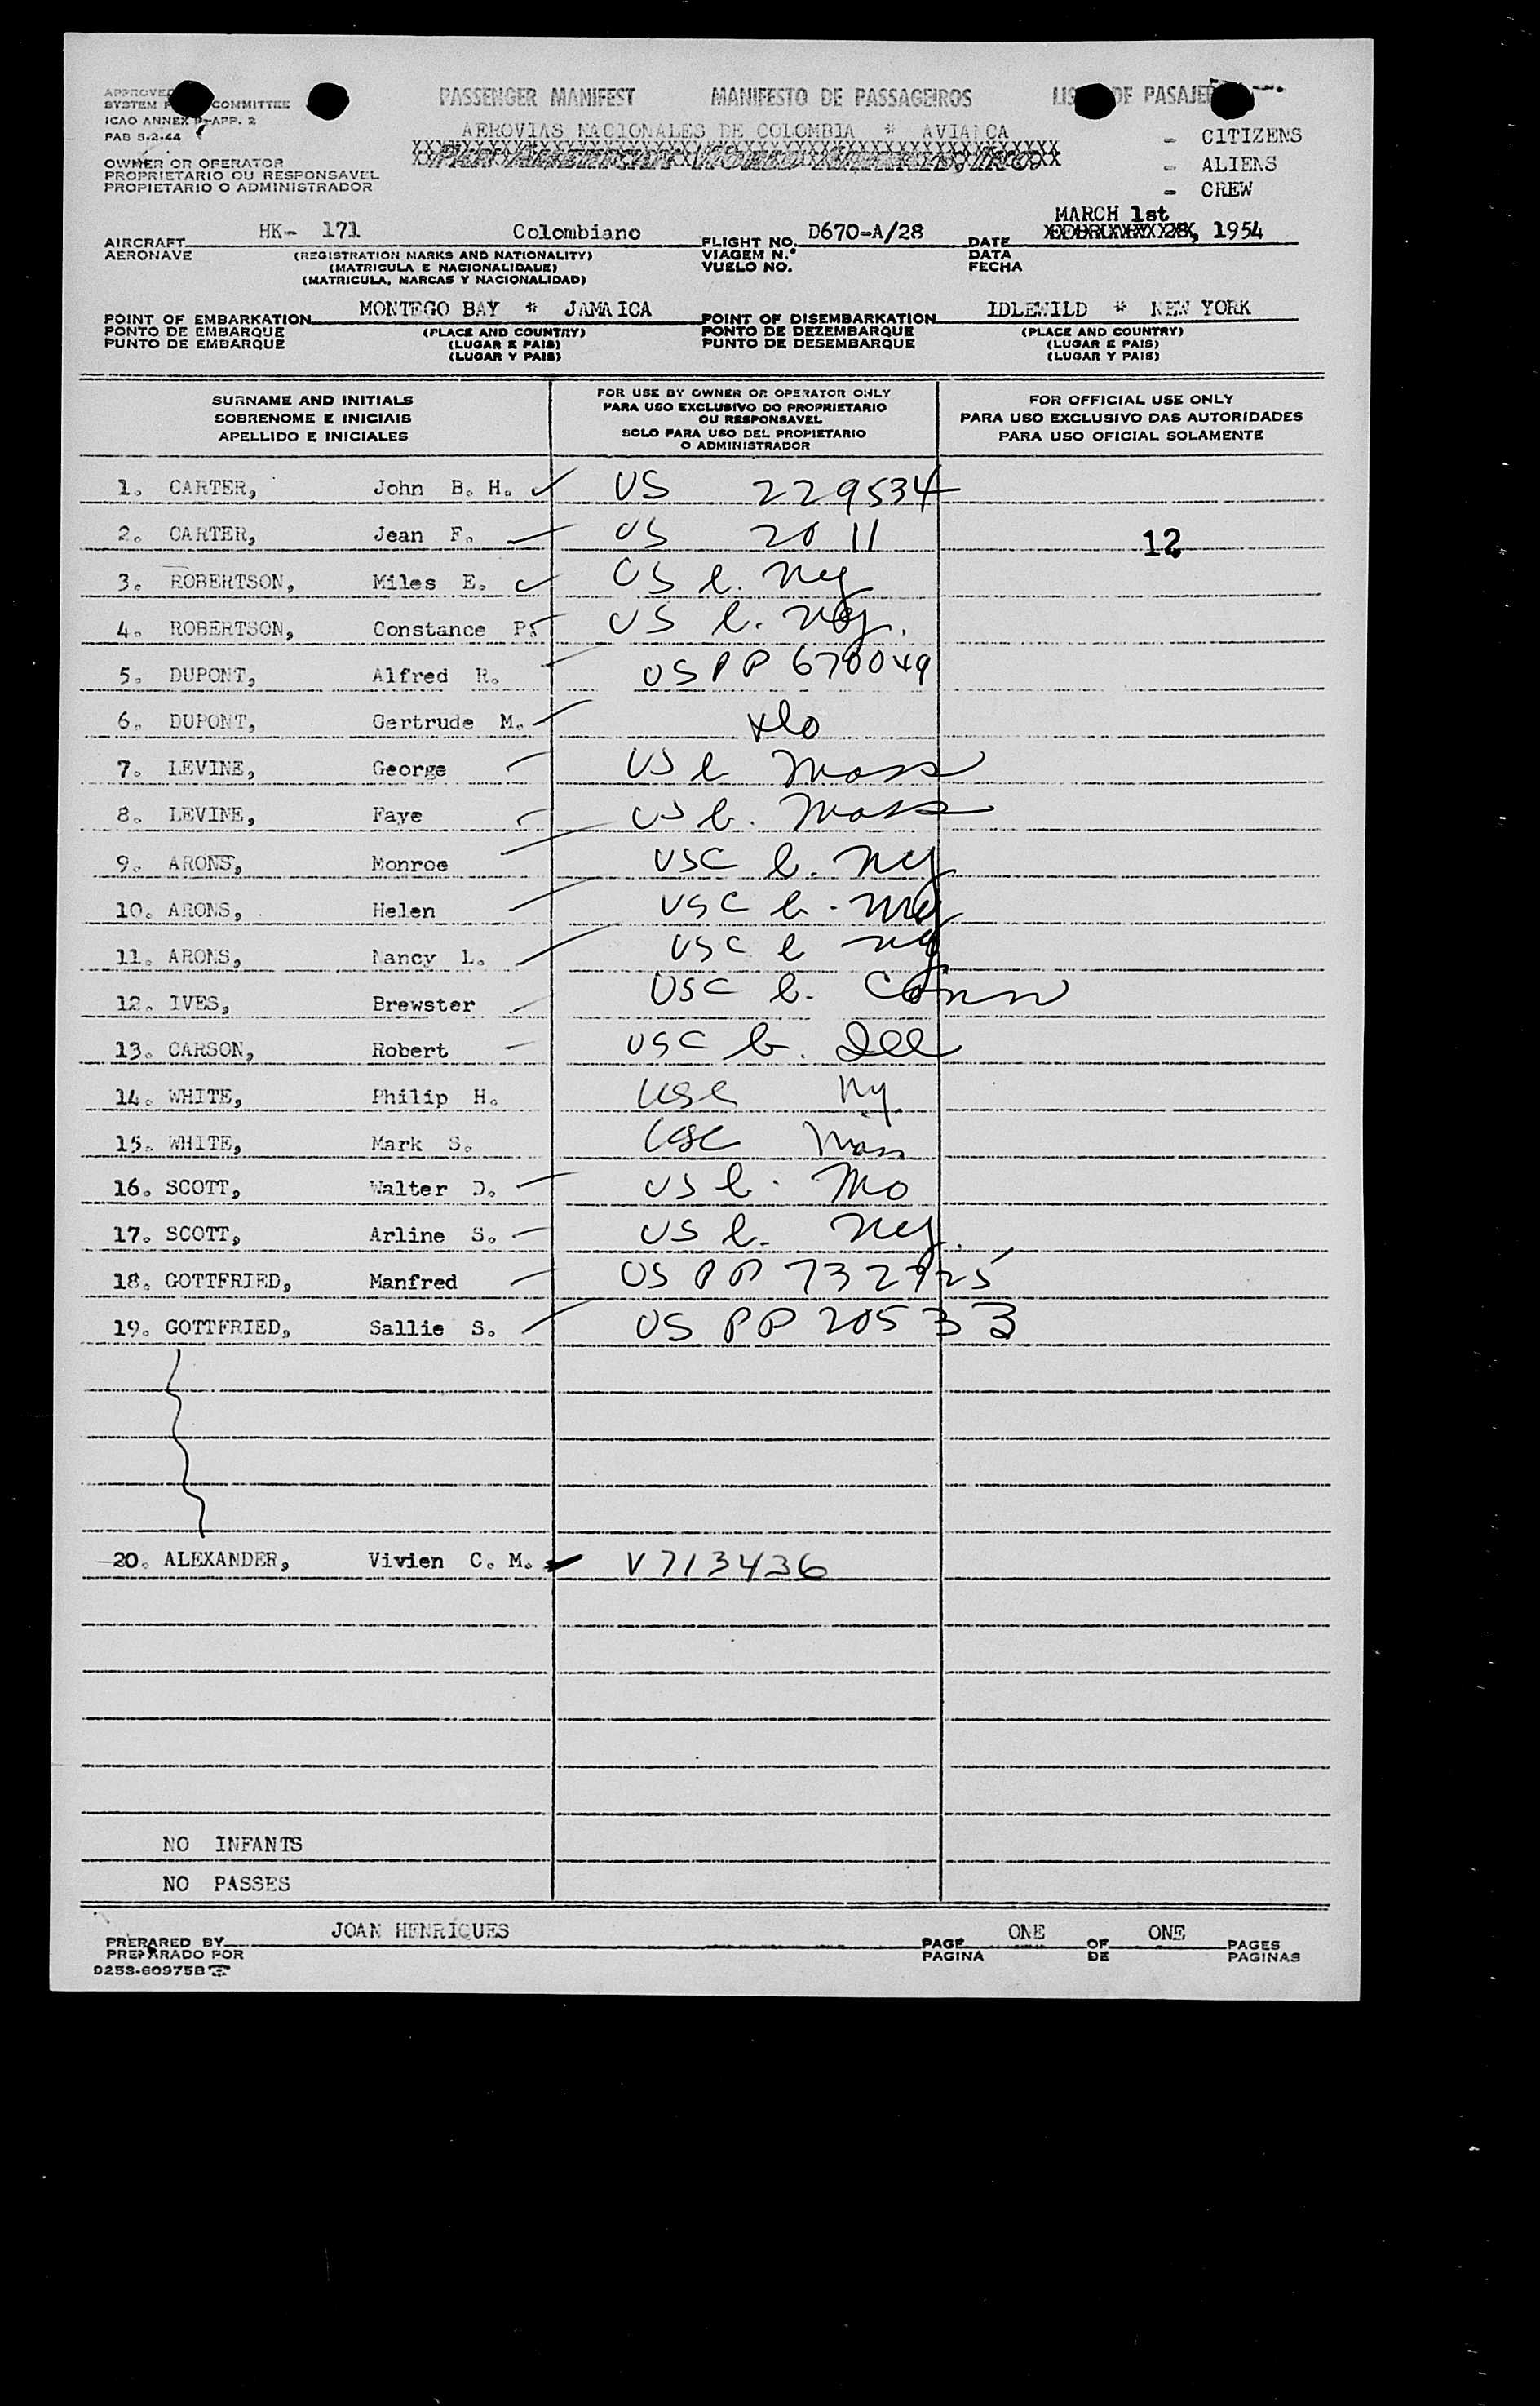 PASSENGER MANIFEST MANIFESTO DE PASSAGEIROS DE PASAJER
COMMITTEE
ICAO ANNEX 9-APP. 2
PAB 5-2-44
AEROVIAS NACIONALES DE COLOMBIA * AVIANCA
- CITIZENS
- ALIENS
- CREW
OWNER OR OPERATOR
PROPRIETARIO OU RESPONSAVEL
PROPIETARIO O ADMINISTRADOR
MARCH 1st
AIRCRAFT HK- 171 Colombiano FLIGHT NO. D670-A/28 DATE , 1954
AERONAVE (REGISTRATION MARKS AND NATIONALITY) VIAGEM N.° DATA
(MATRICULA E NACIONALIDADE) VUELO NO. FECHA
(MATRICULA, MARCAS Y NACIONALIDAD)
POINT OF EMBARKATION MONTEGO BAY * JAMAICA POINT OF DISEMBARKATION IDLEWILD * NEW YORK
PONTO DE EMBARQUE (PLACE AND COUNTRY) PONTO DE DEZEMBARQUE (PLACE AND COUNTRY)
PUNTO DE EMBARQUE (LUGAR E PAIS) PUNTO DE DESEMBARQUE (LUGAR E PAIS)
(LUGAR Y PAIS) (LUGAR Y PAIS)
SURNAME AND INITIALS
SOBRENOME E INICIAIS
APELLIDO E INICIALES
FOR USE BY OWNER OR OPERATOR ONLY
PARA USO EXCLUSIVO DO PROPRIETARIO
OU RESPONSAVEL
SOLO PARA USO DEL PROPIETARIO
O ADMINISTRADOR
FOR OFFICIAL USE ONLY
PARA USO EXCLUSIVO DAS AUTORIDADES
PARA USO OFICIAL SOLAMENTE
1. CARTER, John B. H. US 229534
2. CARTER, Jean F. US 2011 12
3. ROBERTSON, Miles E. US b. NY
4. ROBERTSON, Constance P. US b. NY.
5. DUPONT, Alfred R. US PP 670049
6. DUPONT, Gertrude M.
7. LEVINE, George US b Mass
8. LEVINE, Faye US b. Mass
9. ARONS, Monroe USC b. NY
10. ARONS, Helen USC b. NY
11. ARONS, Nancy L. USC b NY
12. IVES, Brewster USC b. Conn
13. CARSON, Robert USC b. Del
14. WHITE, Philip H. USC NY
15. WHITE, Mark S. USC Mass
16. SCOTT, Walter D. US b. Mo
17. SCOTT, Arline S. US b. NY.
18. GOTTFRIED, Manfred US PP 732925
19. GOTTFRIED, Sallie S. US PP 20533
20. ALEXANDER, Vivien C. M. V713436
NO INFANTS
NO PASSES
PREPARED BY JOAN HENRIQUES PAGE ONE OF ONE PAGES
PREPARADO POR PAGINA DE PAGINAS
0253-60975B